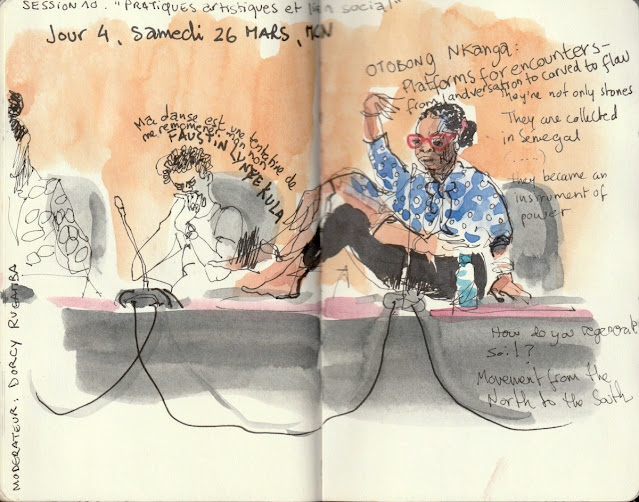 SESSION 10. "PRATIQUES artistiques et lien social"
Jour 4, Samedi 26 MARS, MCN
Ma danse est une tentative de
me remémorer mon
FAUSTIN LINYEKULA
OTOBONG NKANGA:
Platforms for encounters -
from landversation to carved to flow
they're not only stones
They are collected
in Senegal
(.....)
they became an
instrument of
power
How do you regenerate
soil?
Movement from the
North to the South
MODERATEUR: DORCY RUGAMBA